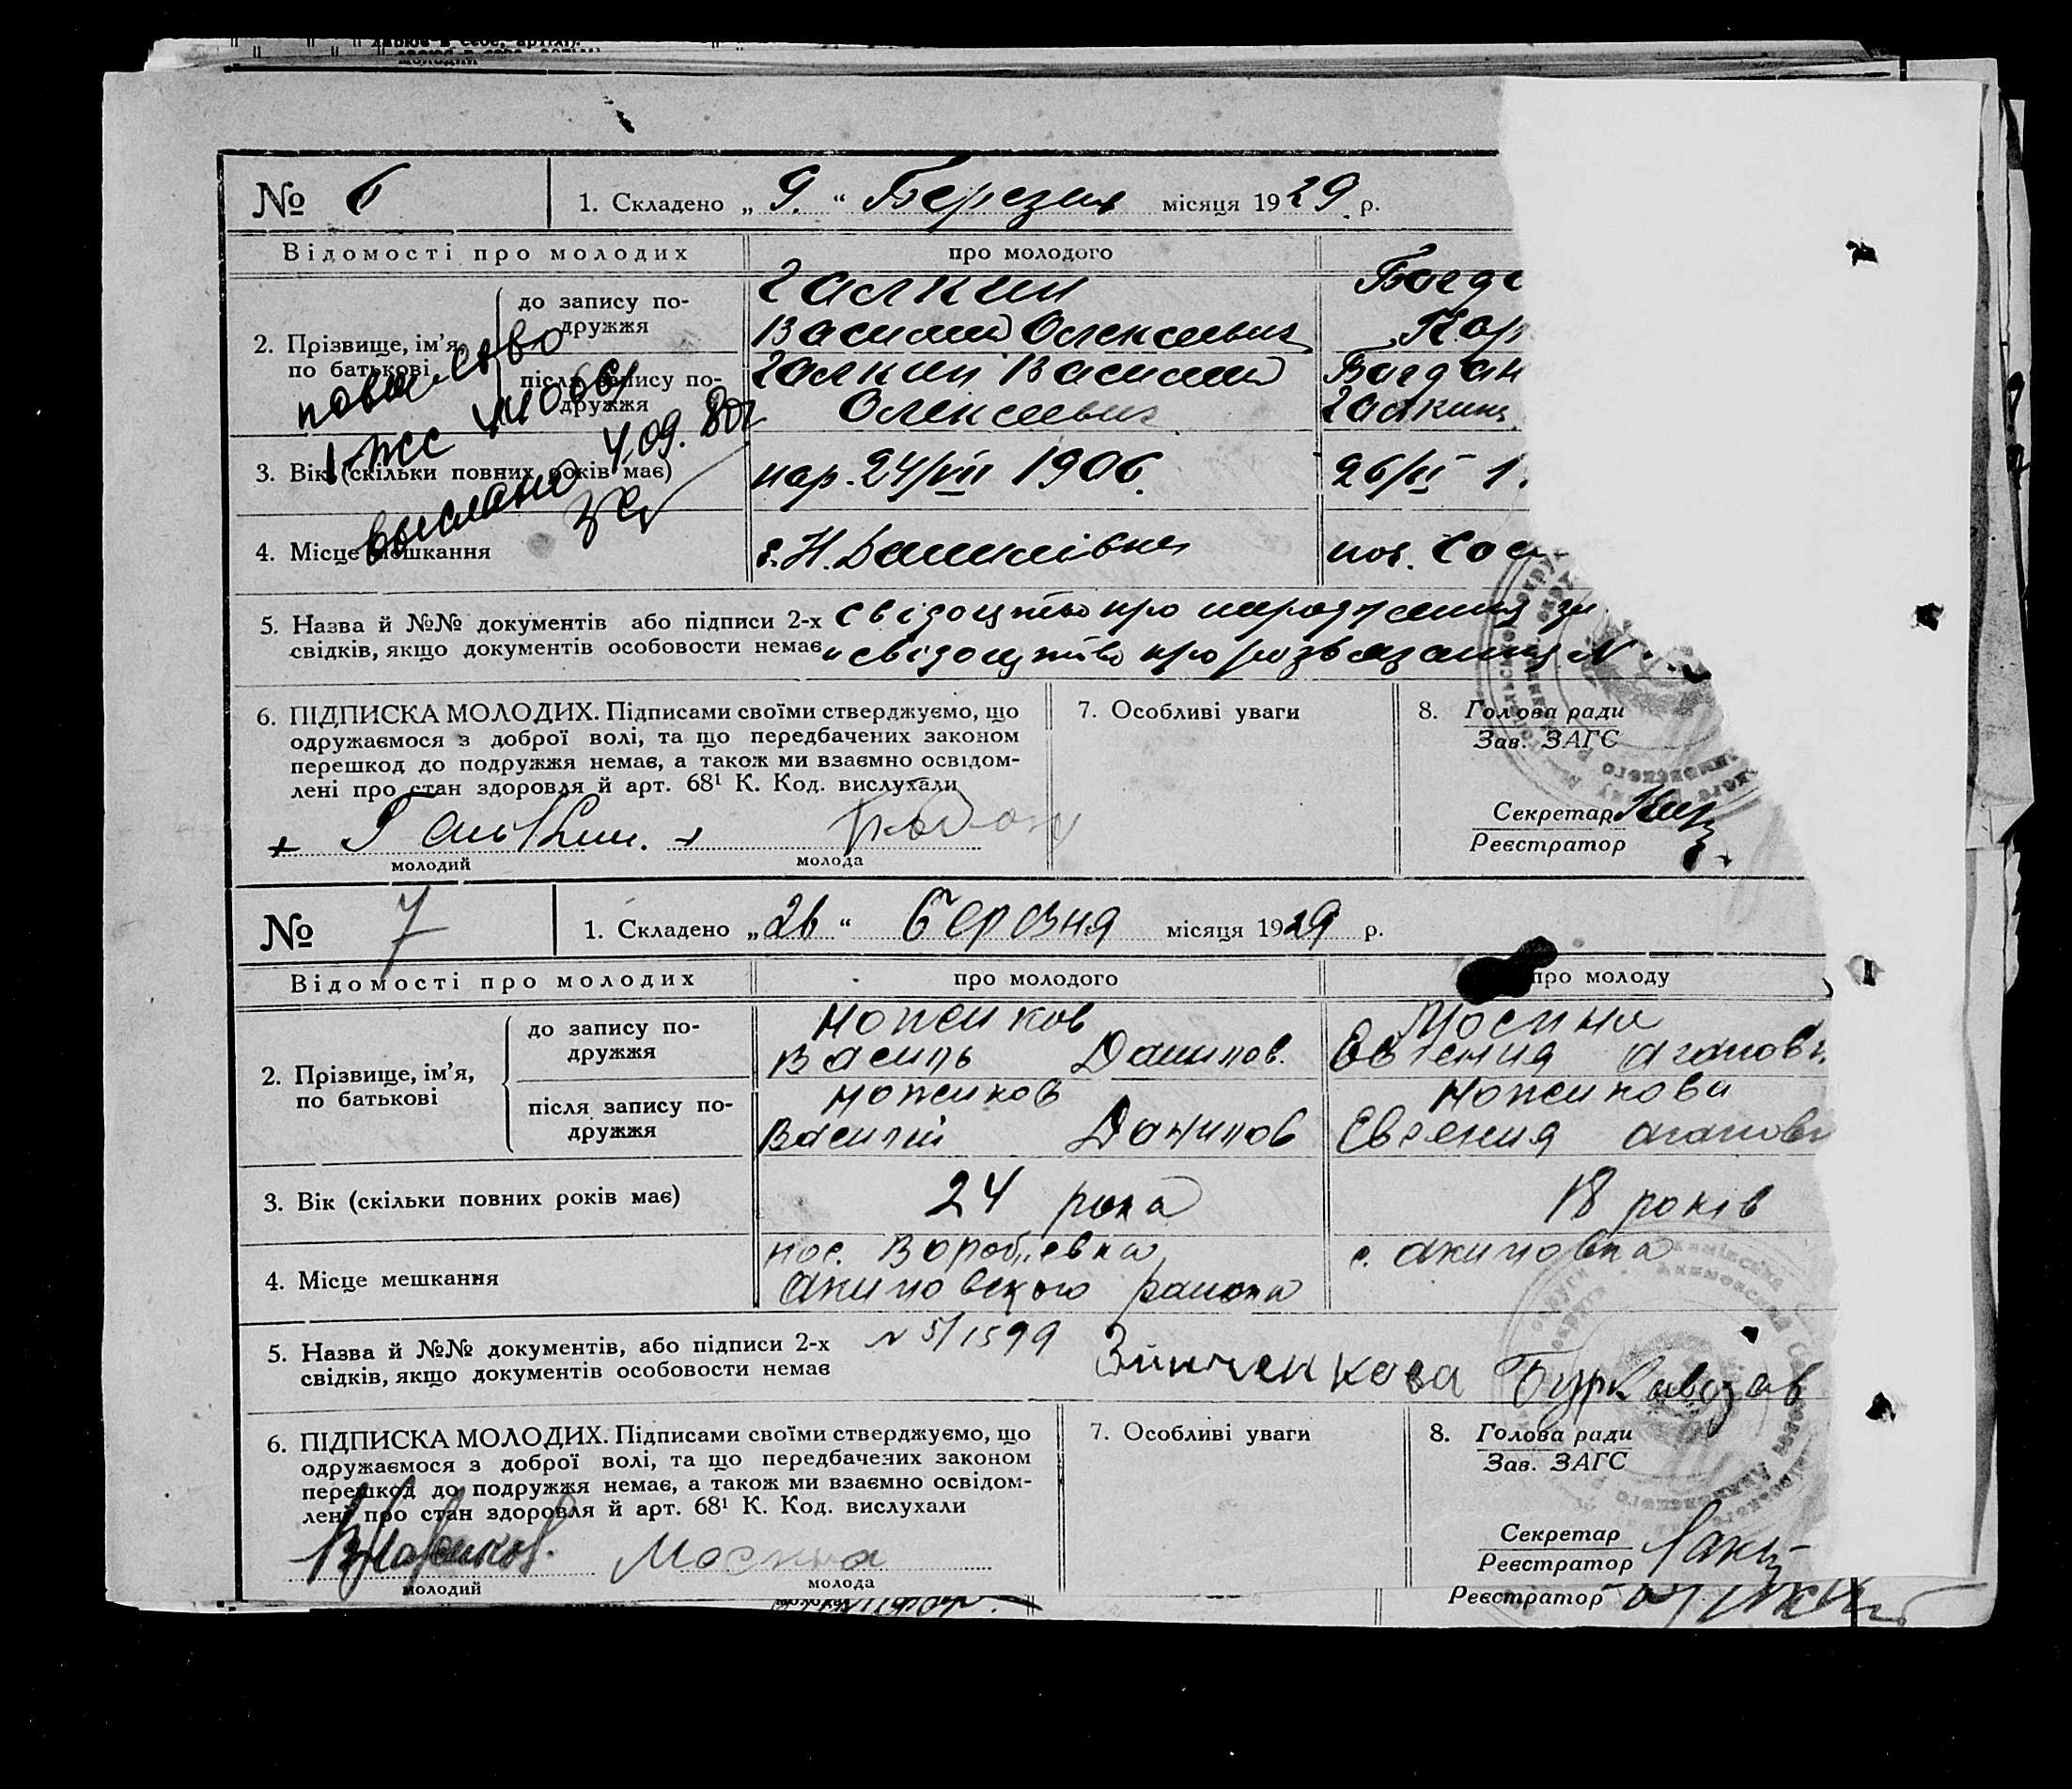 № 6
1. Складено „ 9. “ Березня місяця 1929 р.
Відомості про молодих
про молодого
2. Прізвище, ім’я, по батькові
до запису по-
дружжя
Галкин
Василий Олексеевич
Багд
Кар
після запису по-
дружжя
Галкин Василий
Олексеевич
Багдан
Галкин
3. Вік (скільки повних років має)
нар. 24/VII 1906.
26/II 1
4. Місце мешкання
пос.
выслано
4.09.
5. Назва й №№ документів або підписи 2-х
свідків, якщо документів особовости немає
свідоцтво про народження
и свідоцтво про розвязання N
6. ПІДПИСКА МОЛОДИХ. Підписами своїми стверджуємо, що
одружаємося з доброї волі, та що передбачених законом
перешкод до подружжя немає, а також ми взаємно освідом-
лені про стан здоровля й арт. 68¹ К. Код. вислухали
Галкин.
молодий
молода
7. Особливі уваги
8. Голова ради
Зав. ЗАГС
Секретар
Реєстратор
№ 7
1. Складено „26“ березня місяця 1929 р.
Відомості про молодих
про молодого
про молоду
2. Прізвище, ім’я,
по батькові
до запису по-
дружжя
Ножиков
Василь Данилов.
Мосина
Евгения агапов
після запису по-
дружжя
Ножиков
Василий Данилов
Ножикова
Евгения агапов
3. Вік (скільки повних років має)
24 рока
18 років
4. Місце мешкання
пос. Воробиевка
Акимовского района
с. акимовка
5. Назва й №№ документів, або підписи 2-х
свідків, якщо документів особовости немає
N 5/1599
Зинченкова
6. ПІДПИСКА МОЛОДИХ. Підписами своїми стверджуємо, що
одружаємося з доброї волі, та що передбачених законом
перешкод до подружжя немає, а також ми взаємно освідом-
лені про стан здоровля й арт. 68¹ К. Код. вислухали
ВНожиков.
Мосина
молодий
молода
7. Особливі уваги
8. Голова ради
Зав. ЗАГС
Секретар
Реєстратор
Реєстратор